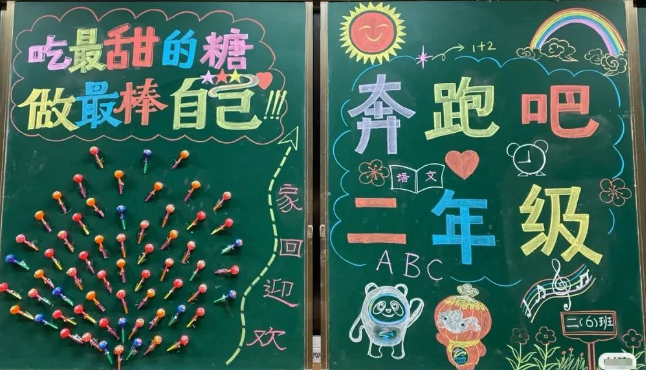 吃最甜的糖
做最棒自己!!!
家回迎欢
1+2
奔跑吧
语文
二年级
ABC
二(6)班